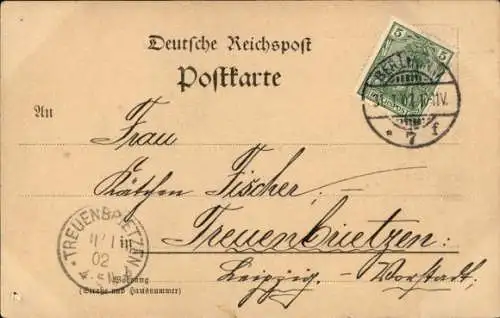 Deutsche Reichspost
Postkarte
5
BERLIN
* 7 f
An
Frau
Käthen Fischer,
in Treuenbrietzen:
Leipzig. – Vorstadt.
TREUENBRIETZEN
02
Wohnung
(Straße und Hausnummer)